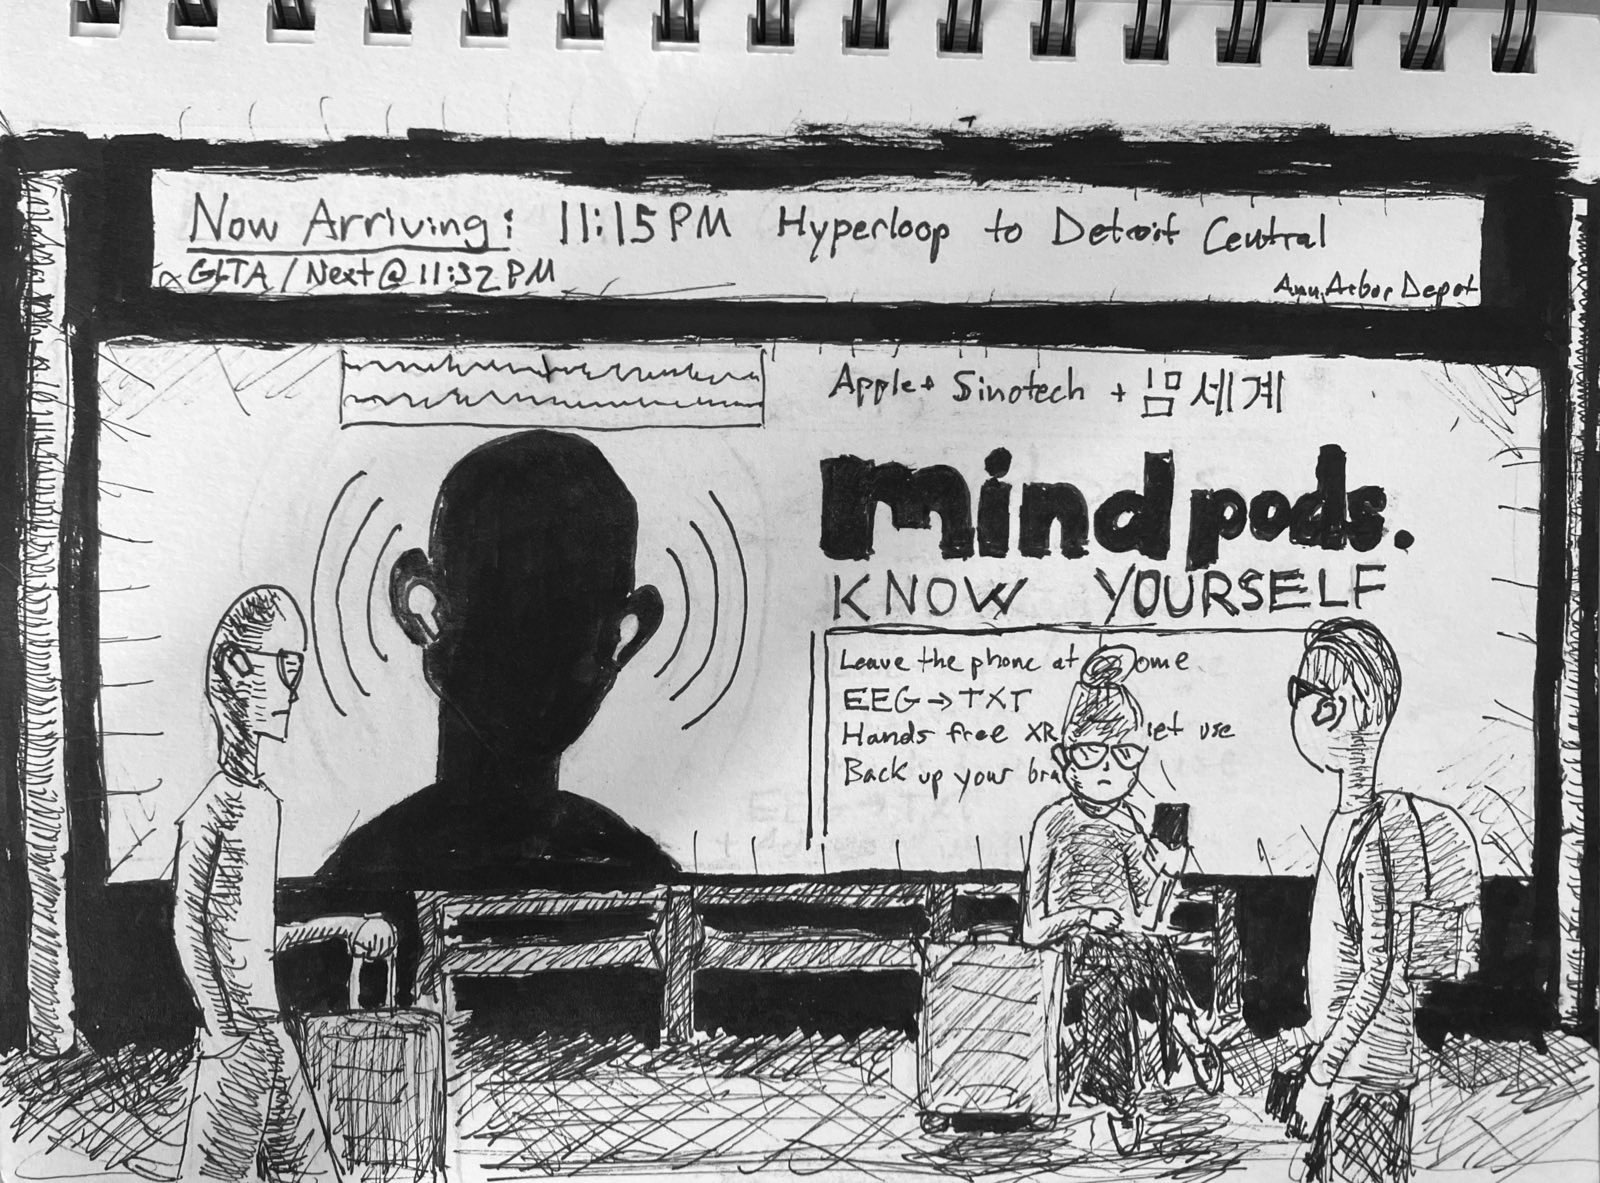 Now Arriving: 11:15 PM Hyperloop to Detroit Central
GLTA / Next @ 11:32 PM
Ann Arbor Depot
Apple + Sinotech + 세계
mindpods.
KNOW YOURSELF
Leave the phone at ome
EEG → TXT
Hands free XR let use
Back up your bra